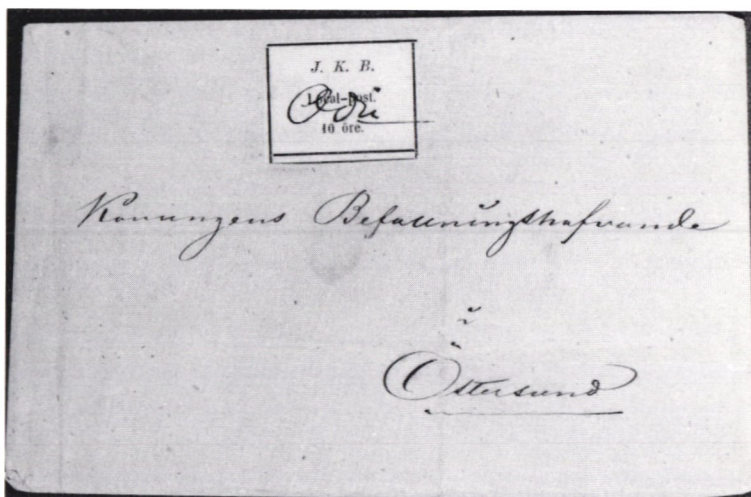 J. K. B.
Local-post.
10 öre.
Konungens Befallningshafvande
i
Östersund